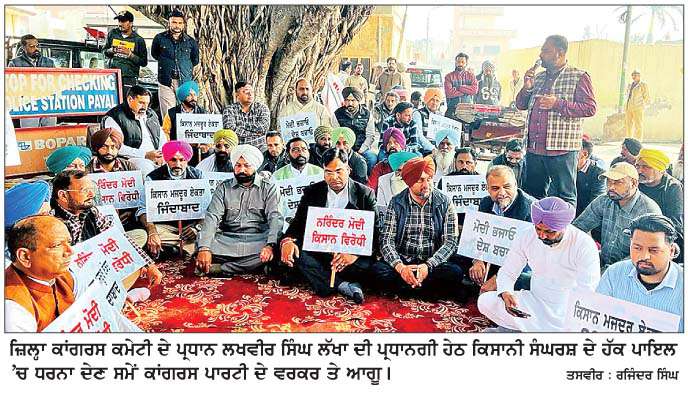 P FOR CHECKING
POLICE STATION PAYAL
BOPAR
ਕਿਸਾਨ ਮਜ਼ਦੂਰ ਏਕਤਾ
ਜਿੰਦਾਬਾਦ
ਨਰਿੰਦਰ ਮੋਦੀ
ਕਿਸਾਨ ਵਿਰੋਧੀ
ਕਿਸਾਨ ਮਜ਼ਦੂਰ ਏਕਤਾ
ਜਿੰਦਾਬਾਦ
ਨਰਿੰਦਰ ਮੋਦੀ
ਕਿਸਾਨ ਵਿਰੋਧੀ
ਮੋਦੀ ਭਜਾਓ
ਦੇਸ਼ ਬਚਾਓ
ਕਿਸਾਨ ਮਜ਼ਦੂਰ ਏਕਤਾ
ਜ਼ਿਲ੍ਹਾ ਕਾਂਗਰਸ ਕਮੇਟੀ ਦੇ ਪ੍ਰਧਾਨ ਲਖਵੀਰ ਸਿੰਘ ਲੱਖਾ ਦੀ ਪ੍ਰਧਾਨਗੀ ਹੇਠ ਕਿਸਾਨੀ ਸੰਘਰਸ਼ ਦੇ ਹੱਕ ਪਾਇਲ
'ਚ ਧਰਨਾ ਦੇਣ ਸਮੇਂ ਕਾਂਗਰਸ ਪਾਰਟੀ ਦੇ ਵਰਕਰ ਤੇ ਆਗੂ।
ਤਸਵੀਰ : ਰਜਿੰਦਰ ਸਿੰਘ